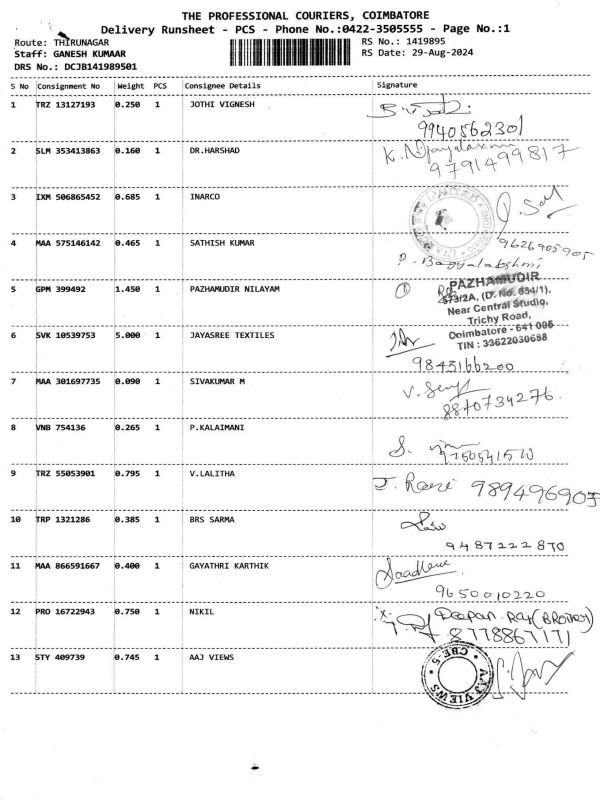 THE PROFESSIONAL COURIERS, COIMBATORE
Delivery Runsheet - PCS - Phone No.:0422-3505555 - Page No.:1
Route: THIRUNAGAR RS No.: 1419895
Staff: GANESH KUMAAR RS Date: 29-Aug-2024
DRS No.: DCJB141989501
S No Consignment No Weight PCS Consignee Details Signature
1 TRZ 13127193 0.250 1 JOTHI VIGNESH
9940562301
2 SLM 353413863 0.160 1 DR.HARSHAD
9791499817
3 IXM 506865452 0.685 1 INARCO
9626905905
4 MAA 575146142 0.465 1 SATHISH KUMAR
P. Bagyalakshmi
5 GPM 399492 1.450 1 PAZHAMUDIR NILAYAM
PAZHAMUDIR
573/2A, (D. No. 654/1),
Near Central Studio,
Trichy Road,
Coimbatore - 641 005
TIN : 33622030688
6 SVK 10539753 5.000 1 JAYASREE TEXTILES
9843166200
7 MAA 301697735 0.090 1 SIVAKUMAR M
8870734276
8 VNB 754136 0.265 1 P.KALAIMANI
9 TRZ 55053901 0.795 1 V.LALITHA
989496905
10 TRP 1321286 0.385 1 BRS SARMA
9487222870
11 MAA 866591667 0.400 1 GAYATHRI KARTHIK
9650010220
12 PRO 16722943 0.750 1 NIKIL
Deepan Raj (BROTHER)
8778867171
13 STY 409739 0.745 1 AAJ VIEWS
AAJ VIEWS
CBE-5